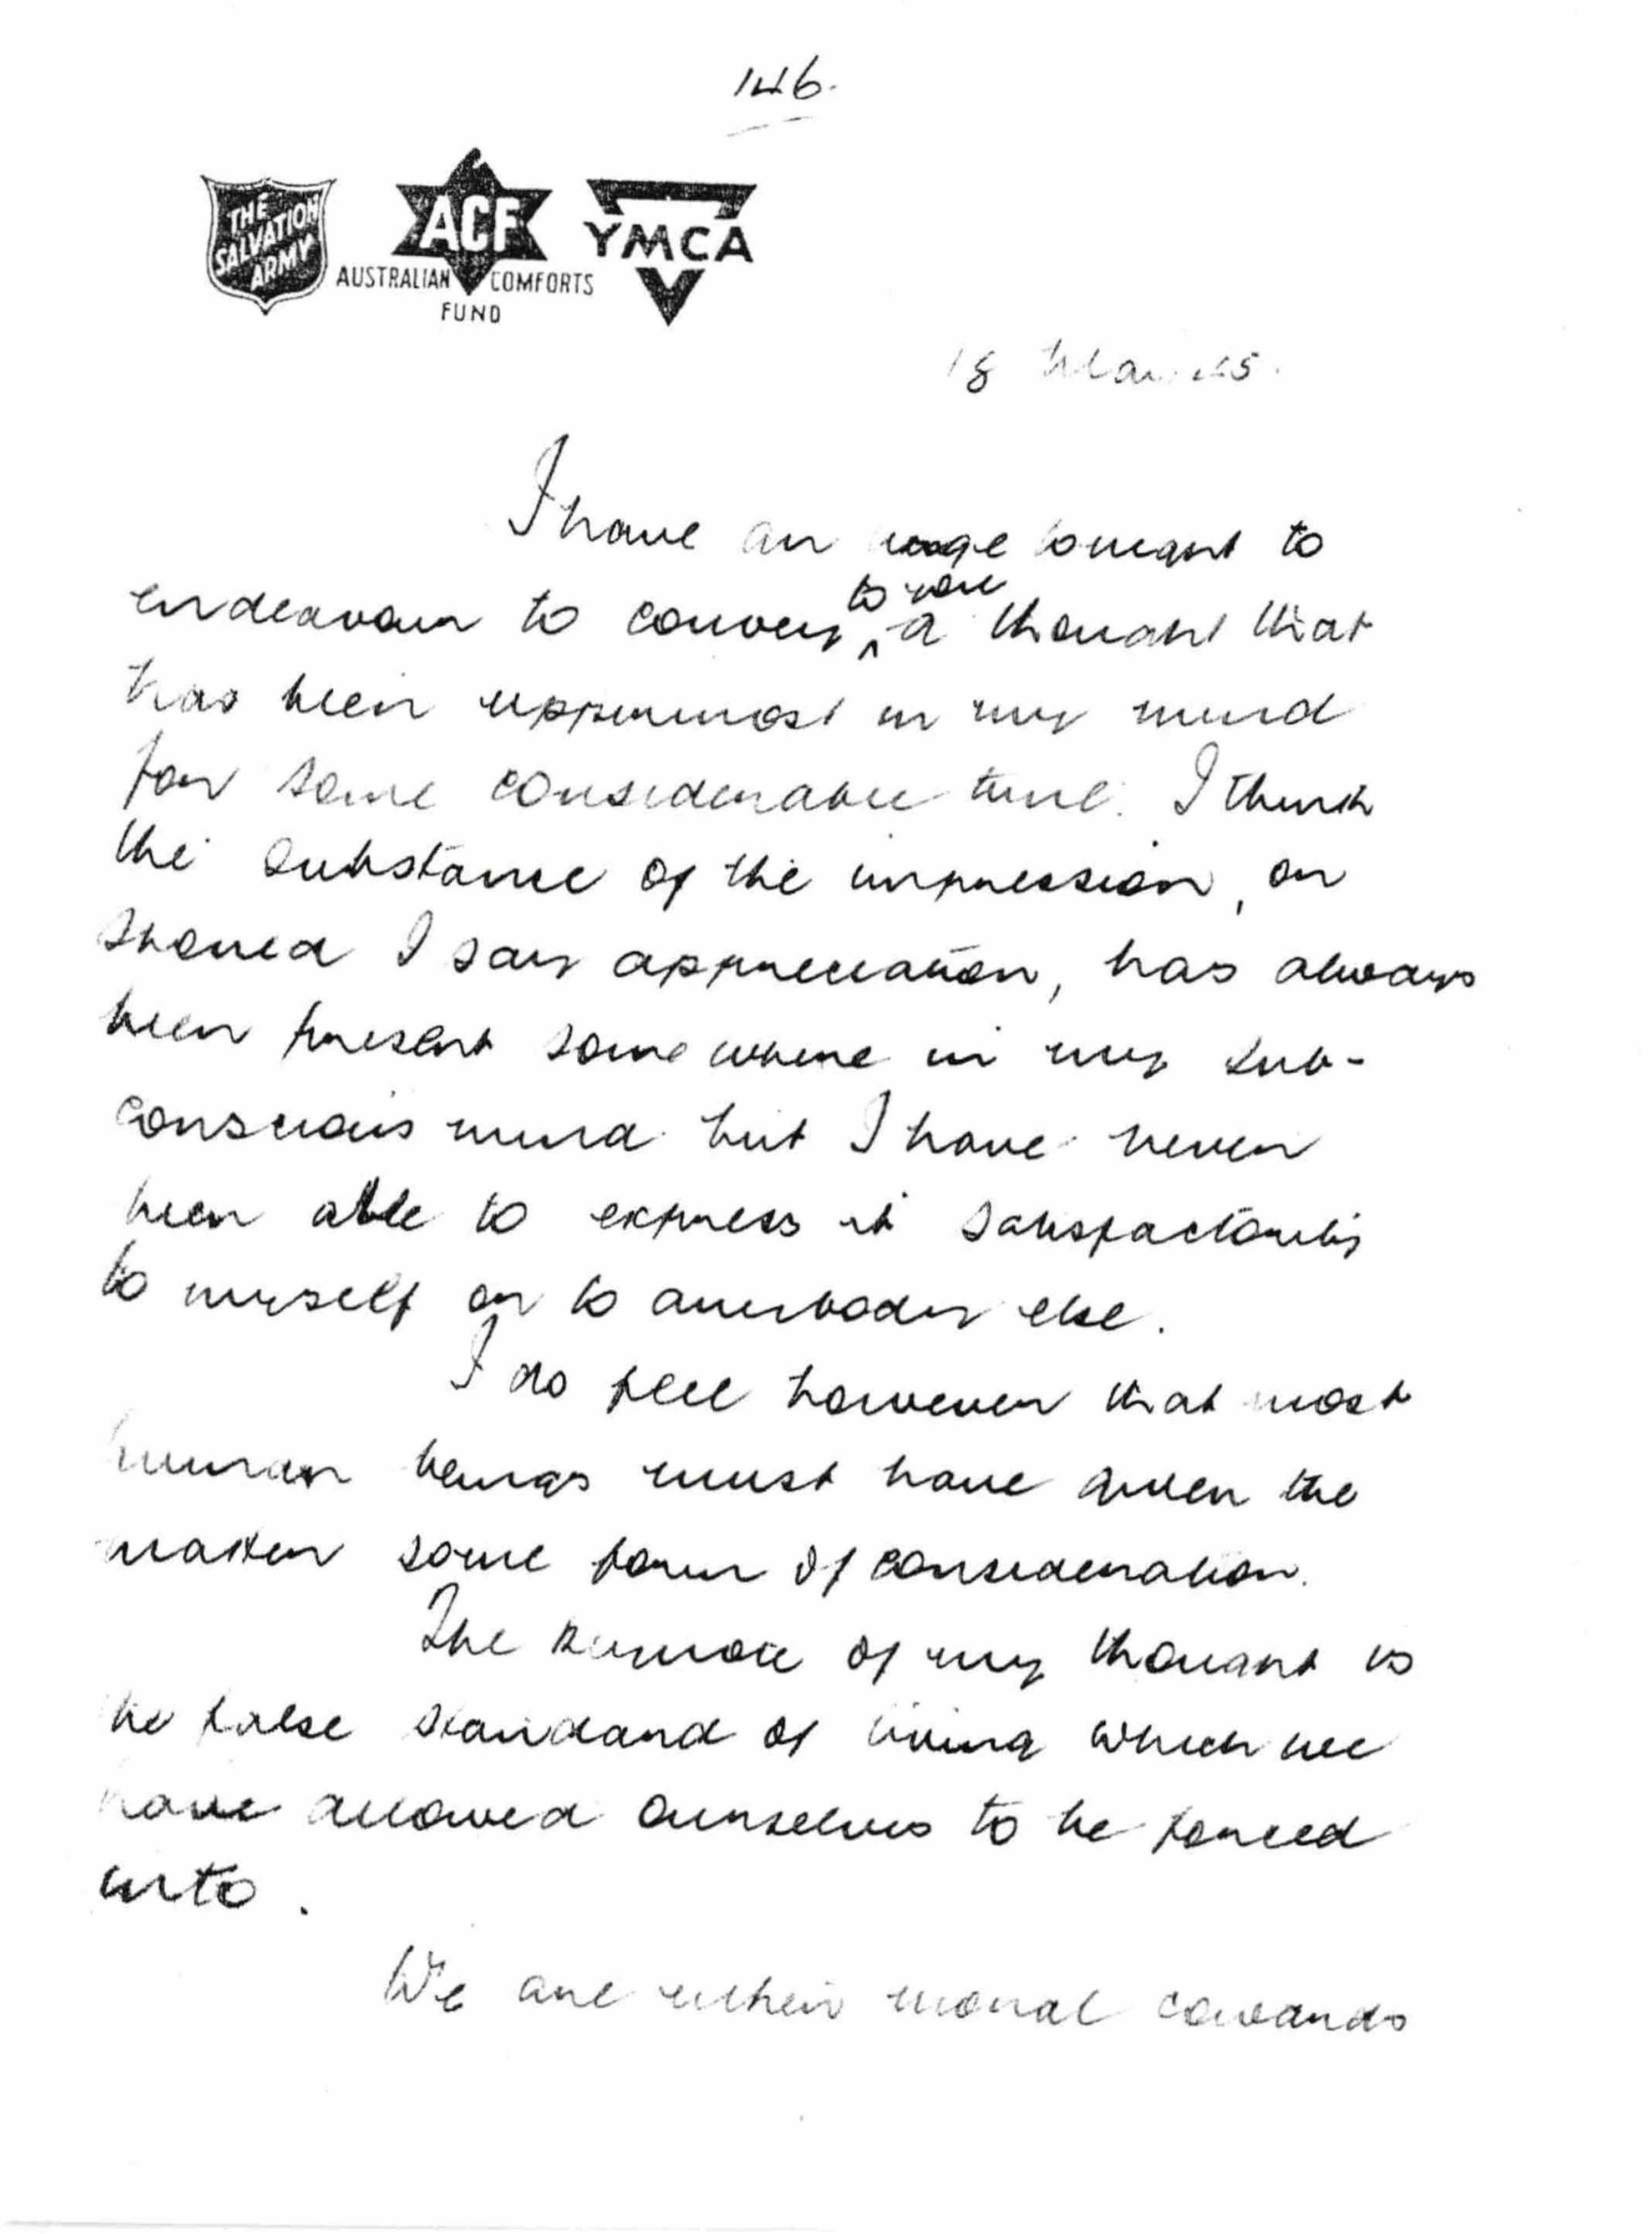 146.
THE SALVATION ARMY
ACF
AUSTRALIAN COMFORTS FUND
YMCA
18 Mar 45.
I have an urge tonight to
endeavour to convey to you a thought that
has been uppermost in my mind
for some considerable time. I think
the substance of the impression, or
should I say appreciation, has always
been present somewhere in my sub-
conscious mind but I have never
been able to express it satisfactorily
to myself or to anybody else.
I do feel however that most
human beings must have given the
matter some form of consideration.
The of my thought is
the false standard of living which we
have allowed ourselves to be forced
into.
We are either moral cowards